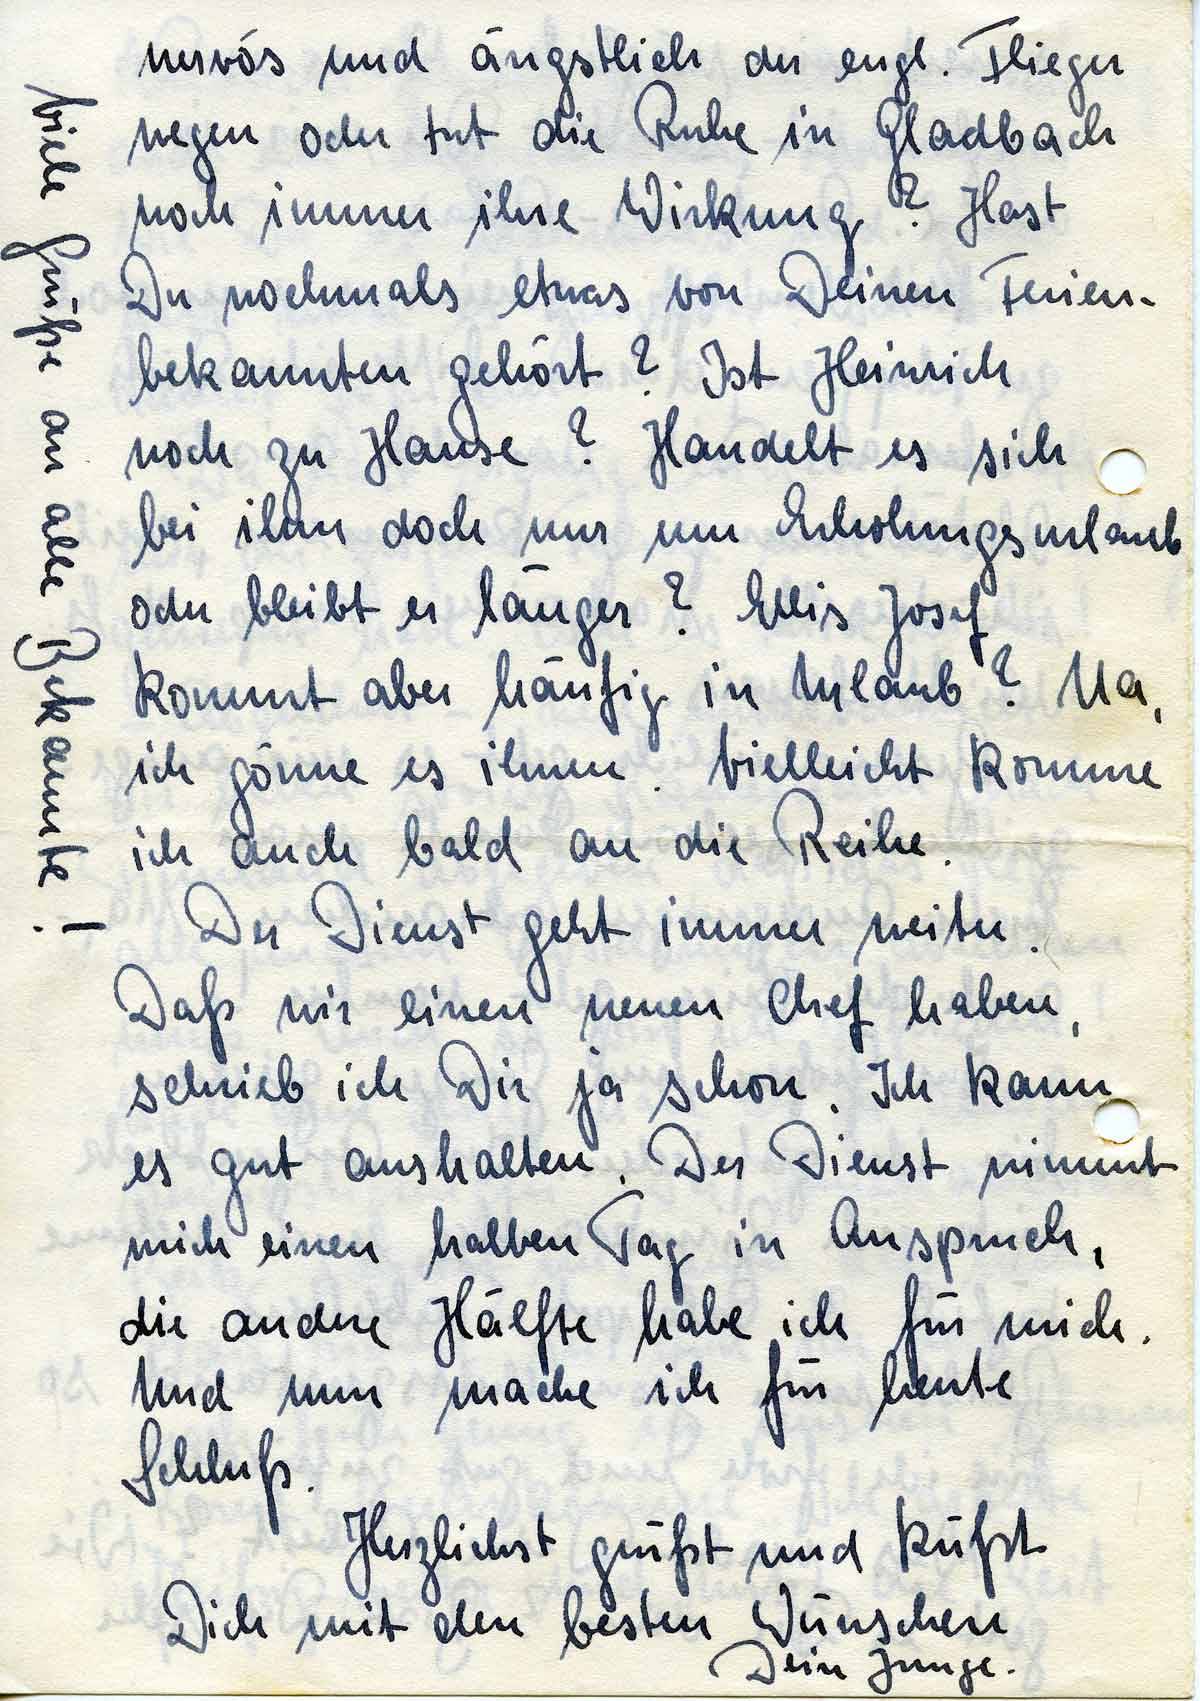 nervös und ängstlich der engl. Flieger
wegen oder tut die Ruhe in Gladbach
noch immer ihre Wirkung? Hast
Du nochmals etwas von Deinen Ferien-
bekannten gehört? Ist Heinrich
noch zu Hause? Handelt es sich
bei ihm doch nur um Erholungsurlaub
oder bleibt er länger? Ellis Josef
kommt aber häufig in Urlaub? Na,
ich gönne es ihnen. Vielleicht komme
ich auch bald an die Reihe.
Der Dienst geht immer weiter.
Daß wir einen neuen Chef haben,
schrieb ich Dir ja schon. Ich kann
es gut aushalten. Der Dienst nimmt
mich einen halben Tag in Anspruch,
die andere Hälfte habe ich für mich.
Und nun mache ich für heute
Schluß.
Herzlichst grüßt und küßt
Dich mit den besten Wünschen
Dein Junge.
Viele Grüße an alle Bekannte!